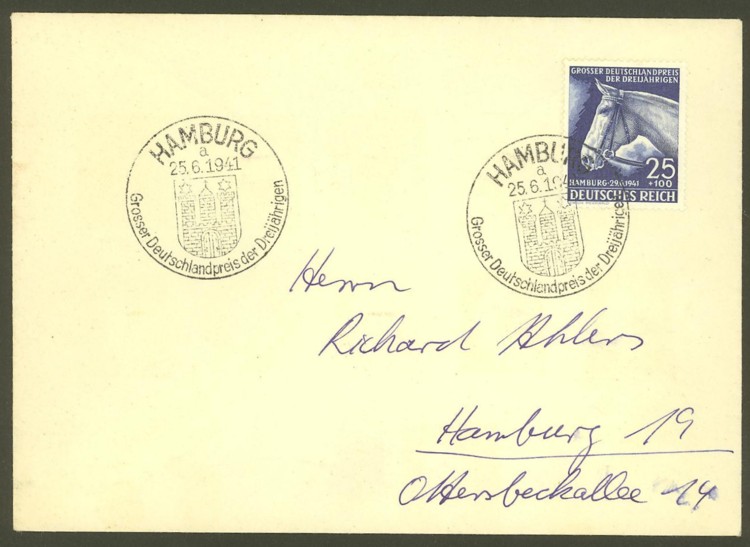 HAMBURG
a
25.6.1941
Grosser Deutschlandpreis der Dreijährigen
HAMBURG
a
25.6.1941
Grosser Deutschlandpreis der Dreijährigen
GROSSER DEUTSCHLANDPREIS
DER DREIJÄHRIGEN
25
+100
HAMBURG·29.VI.1941
DEUTSCHES REICH
Herrn
Richard Ahlers
Hamburg 19
Ottersbeckallee 14